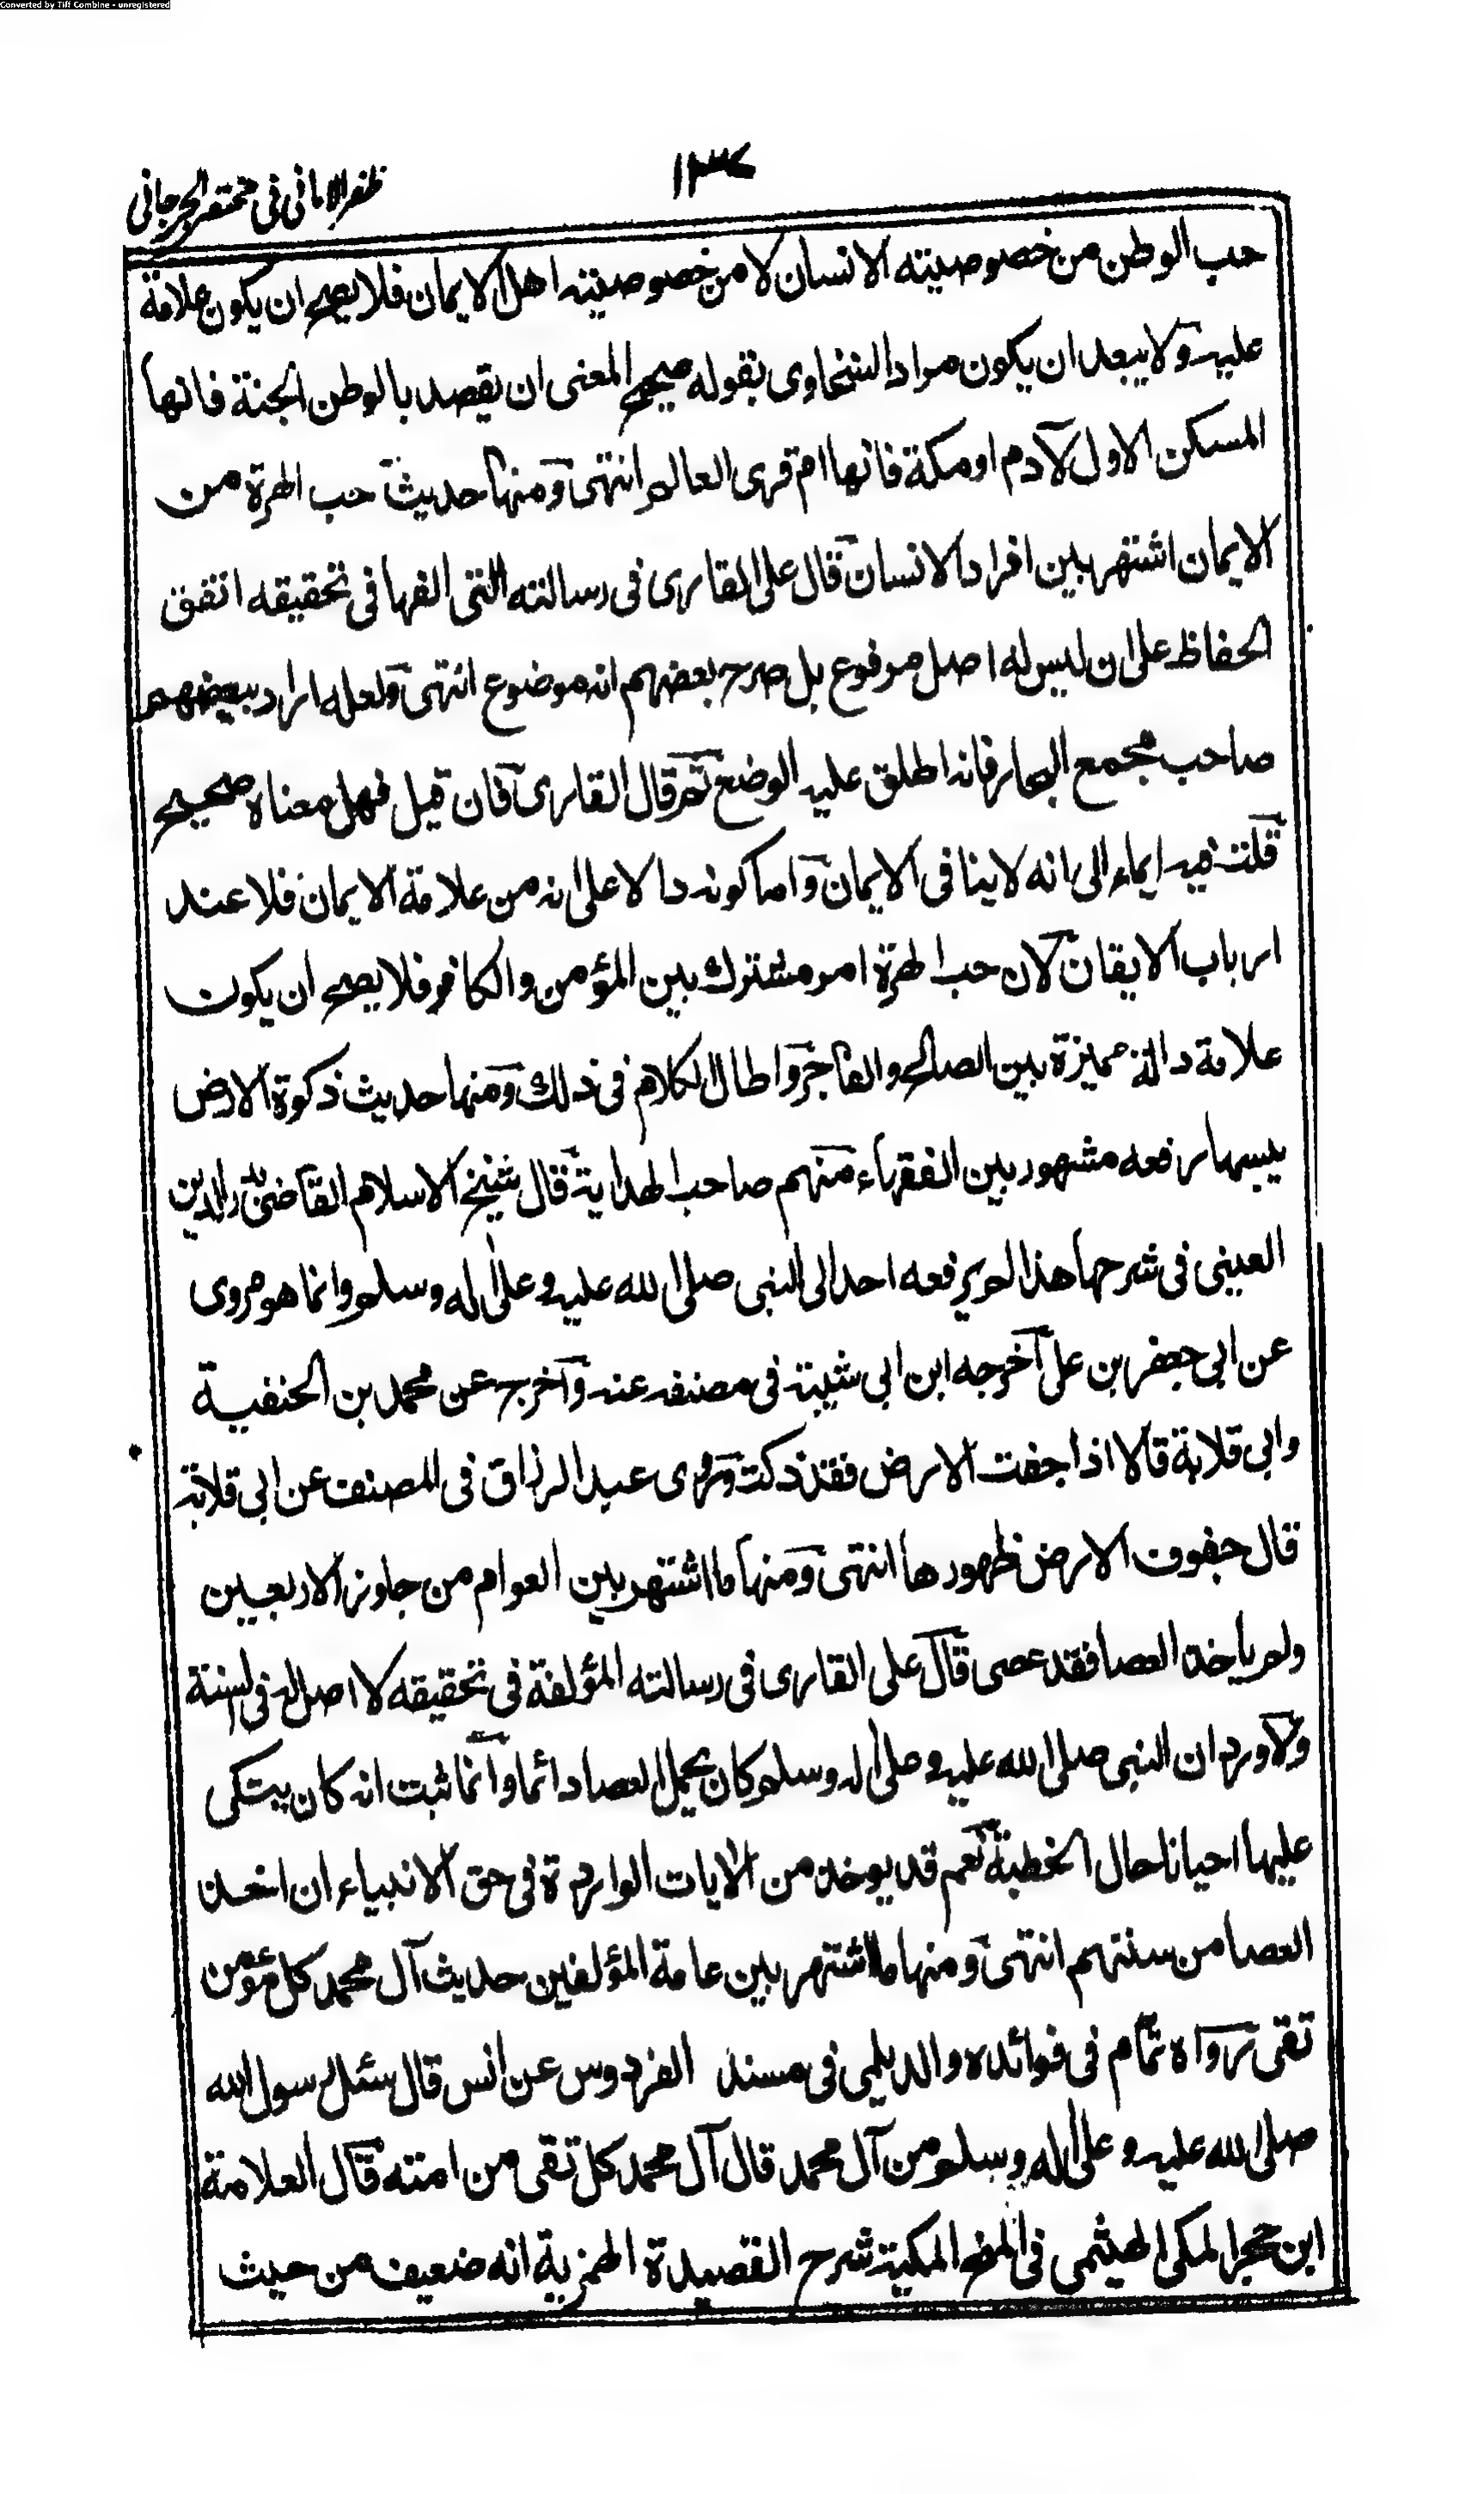 Converted by Tiff Combine - unregistered
١٣٤
ظفر الامانی فی مختصر الجرجانی
حب الوطن من خصوصیته الانسان لا من خصوصیته اهل الایمان فلا یصح ان یکون علامة
علیه ولا یبعد ان یکون مراد السخاوی بقوله صحیح المعنی ان یقصد بالوطن الجنة فانها
المسکن الاول لآدم او مکة فانها ام قری العالم انتهی ومنها حدیث حب الهرة من
الایمان اشتهر بین افراد الانسان قال علی القاری فی رسالته التی الفها فی تحقیقه اتفق
الحفاظ علی ان لیس له اصل مرفوع بل صرح بعضهم انه موضوع انتهی ولعله اراد ببعضهم
صاحب مجمع البحار فانه اطلق علیه الوضع ثم قال القاری فان قیل فهل معناه صحیح
قلت فیه ایماء الی انه لا ینافی الایمان واما کونه دالا علی انه من علامة الایمان فلا عند
ارباب الایقان لان حب الهرة امر مشترك بین المؤمن والکافر فلا یصح ان یکون
علامة دالة ممیزة بین الصالح والفاجر واطال الکلام فی ذلك ومنها حدیث ذکوة الارض
یبسها رفعه مشهور بین الفقهاء منهم صاحب الهدایة قال شیخ الاسلام القاضی بدر الدین
العینی فی شرحها هذا لم یرفعه احد الی النبی صلی الله علیه وعلی اله وسلم وانما هو مروی
عن ابی جعفر بن علی اخرجه ابن ابی شیبة فی مصنفه عنه واخرج عن محمد بن الحنفیة
وابی قلابة قالا اذا جفت الارض فقد ذکت وروی عبد الرزاق فی المصنف عن ابی قلابة
قال جفوف الارض ظهورها انتهی ومنها ما اشتهر بین العوام من جاوز الاربعین
ولم یاخذ العصا فقد عصی قال علی القاری فی رسالته المؤلفة فی تحقیقه لا اصل له فی السنة
ولا ورد ان النبی صلی الله علیه وعلی اله وسلم کان یحمل العصا دائما وانما ثبت انه کان یتکی
علیها احیانا حال الخطبة نعم قد یوخذ من الایات الواردة فی حق الانبیاء ان اخذ
العصا من سنتهم انتهی ومنها ما اشتهر بین عامة المؤلفین حدیث آل محمد کل مؤمن
تقی رواه تمام فی فوائده والدیلمی فی مسند الفردوس عن انس قال سئل رسول الله
صلی الله علیه وعلی اله وسلم من آل محمد قال آل محمد کل تقی من امته قال العلامة
ابن حجر المکی الهیثمی فی المنح المکیة شرح القصیدة الهمزیة انه ضعیف من حیث